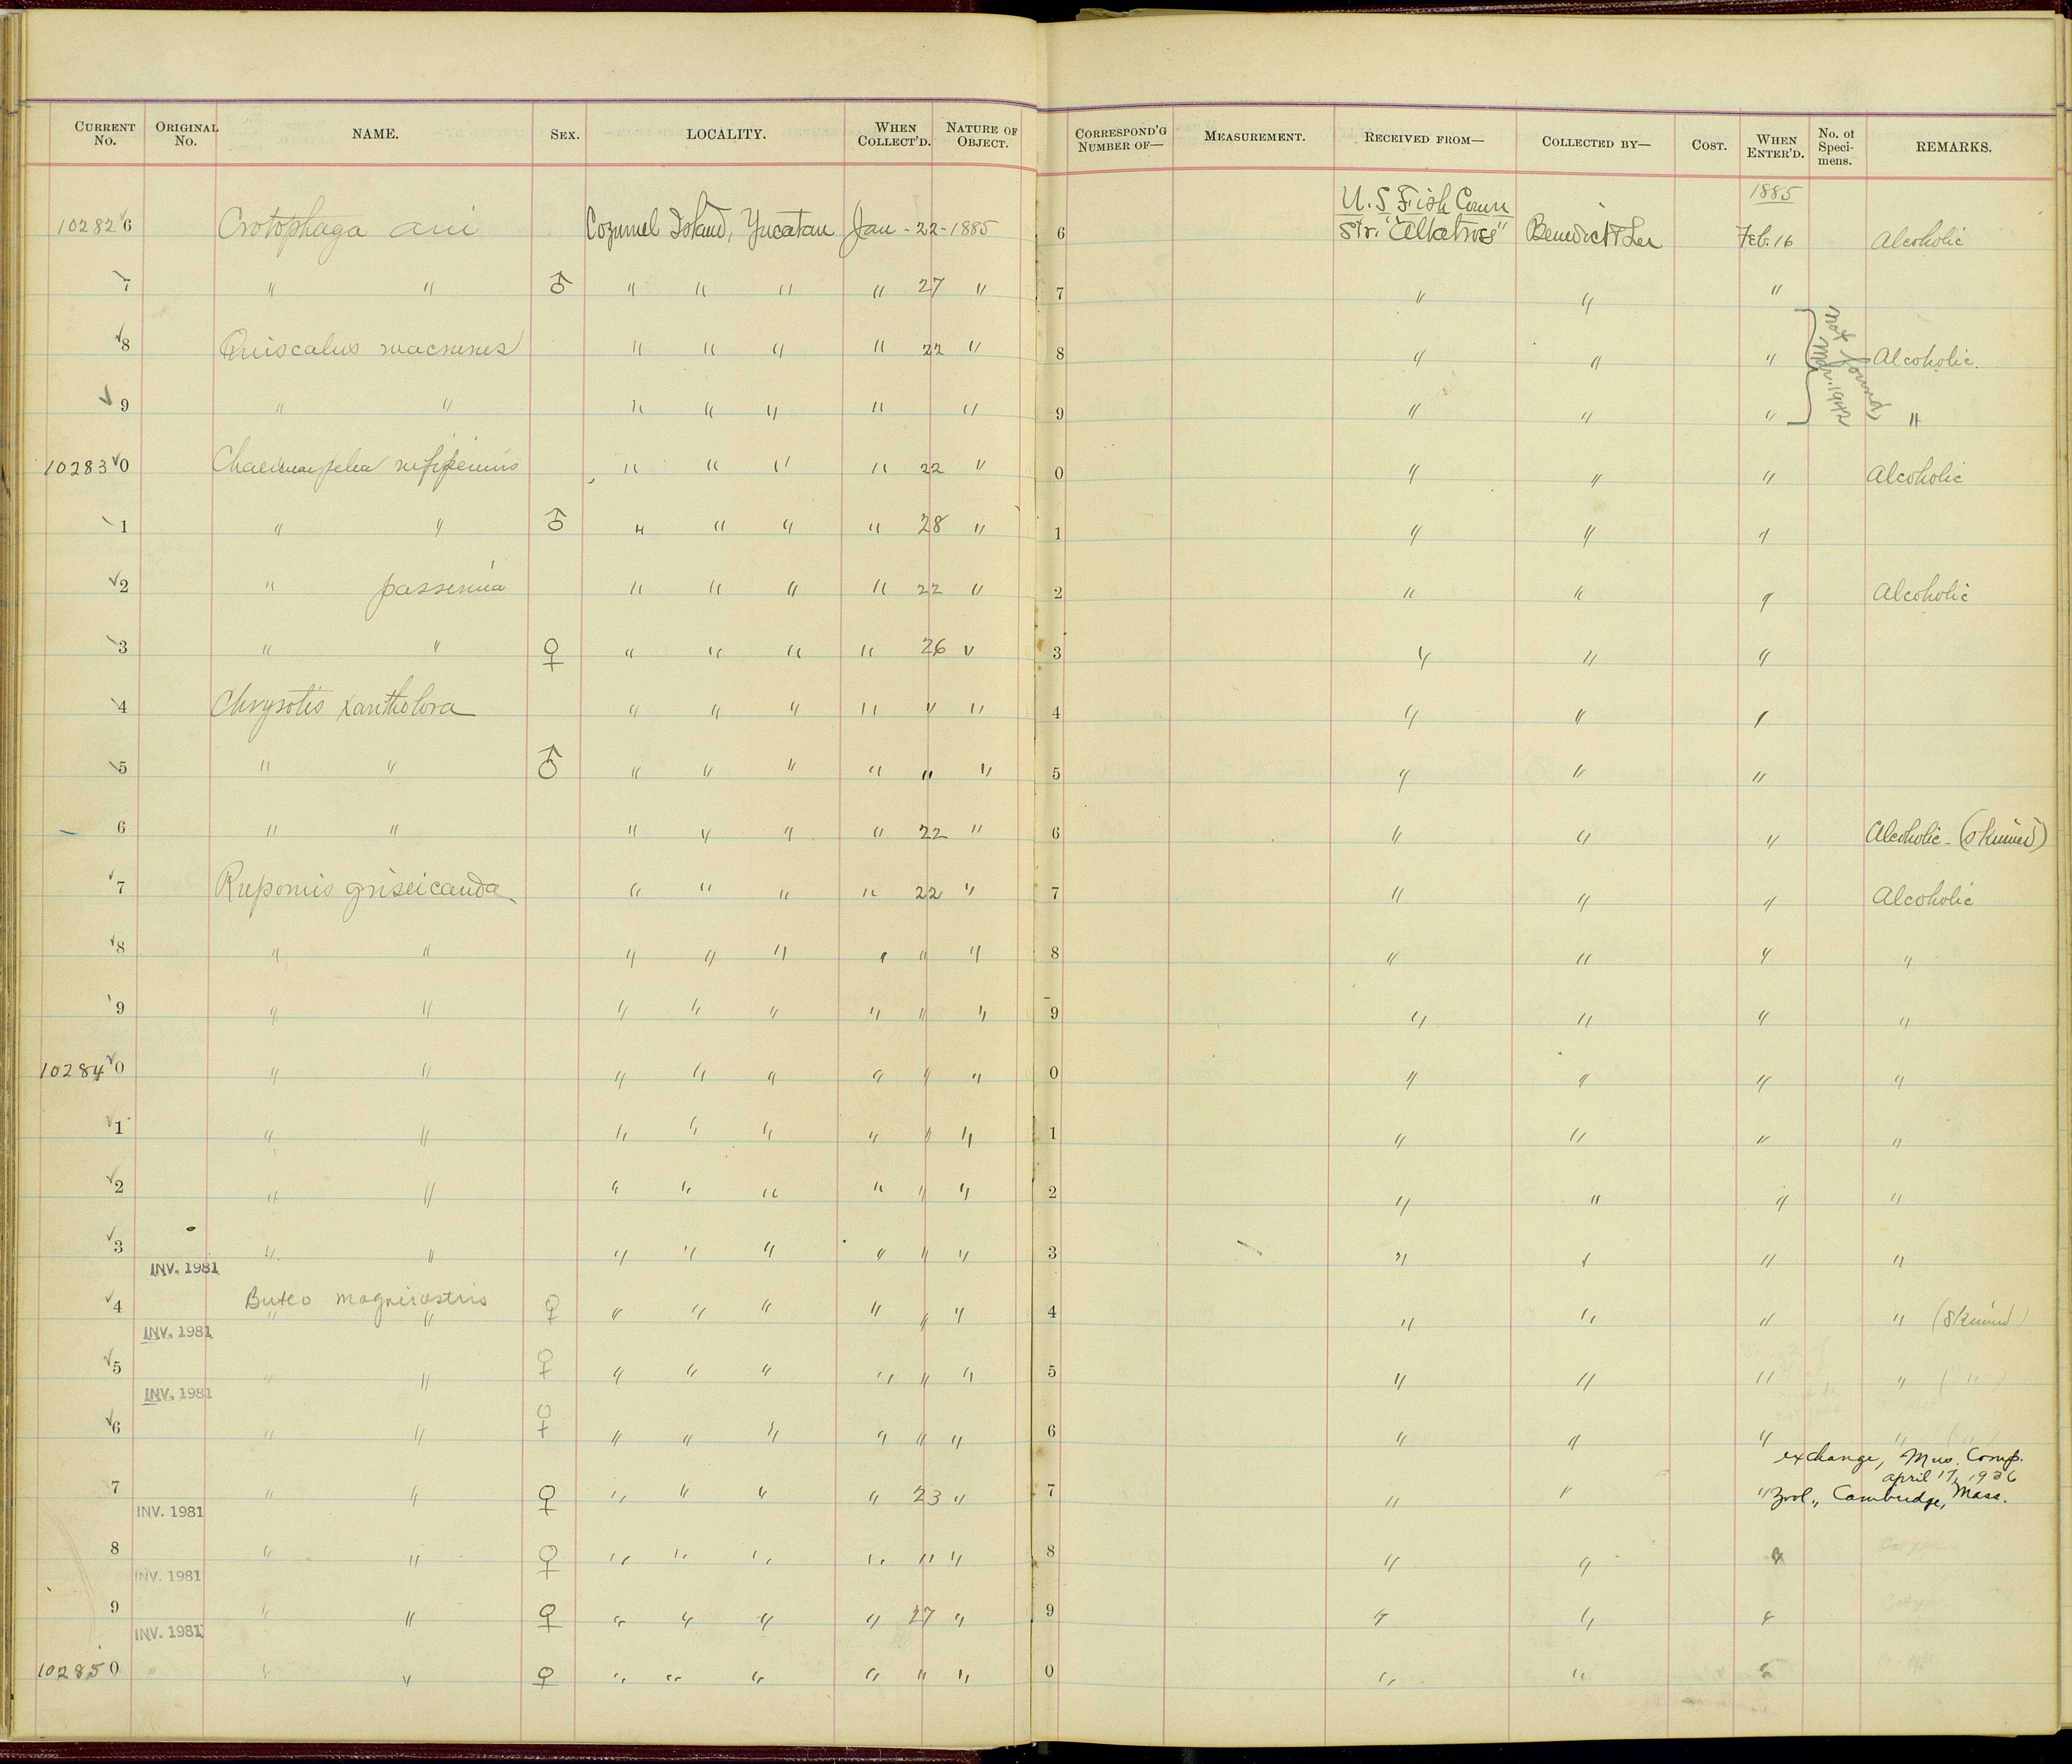 CURRENT No. ORIGINAL No. NAME. SEX. LOCALITY. WHEN COLLECT'D. NATURE OF OBJECT. CORRESPOND'G NUMBER OF— MEASUREMENT. RECEIVED FROM— COLLECTED BY— COST. WHEN ENTER'D. No. of Specimens. REMARKS.
U.S Fish Comm 1885
10282 6 Crotophaga ani Cozumel Island, Yucatan Jan - 22 - 1885 6 Str. "Albatross" Benedict & Lee Feb. 16 Alcoholic
7 " " ♂ " " " " 27 " 7 " " "
8 Quiscalus macrurus " " " " 22 " 8 " " " Alcoholic.
not found
Mar. 1942
9 " " " " " " " 9 " " " "
10283 0 rufipennis " " " " 22 " 0 " " " Alcoholic
1 " " ♂ " " " " 28 " 1 " " "
2 " passerina " " " " 22 " 2 " " " Alcoholic
3 " " ♀ " " " " 26 " 3 " " "
4 Chrysotis xantholora " " " " " " 4 " " "
5 " " ♂ " " " " " " 5 " " "
6 " " " " " " 22 " 6 " " " Alcoholic - (skinned)
7 Rupornis griseicauda " " " " 22 " 7 " " " Alcoholic
8 " " " " " " " " 8 " " " "
9 " " " " " " " " 9 " " " "
10284 0 " " " " " " " " 0 " " " "
1 " " " " " " " " 1 " " " "
2 " " " " " " " " 2 " " " "
3 " " " " " " " " 3 " " " "
INV. 1981
Buteo magnirostris
4 " " ♀ " " " " " " 4 " " " " (skinned)
INV. 1981
5 " " ♀ " " " " " " 5 " " " " ( " )
INV. 1981
6 " " ♀ " " " " " " 6 " " " " ( " )
exchange, Mus. Comp.
april 17, 1936
7 " " ♀ " " " " 23 " 7 " " " Zool., Cambridge, Mass.
INV. 1981
8 " " ♀ " " " " " " 8 " " "
INV. 1981
9 " " ♀ " " " " 27 " 9 " " "
INV. 1981
10285 0 " " ♀ " " " " " " 0 " " "